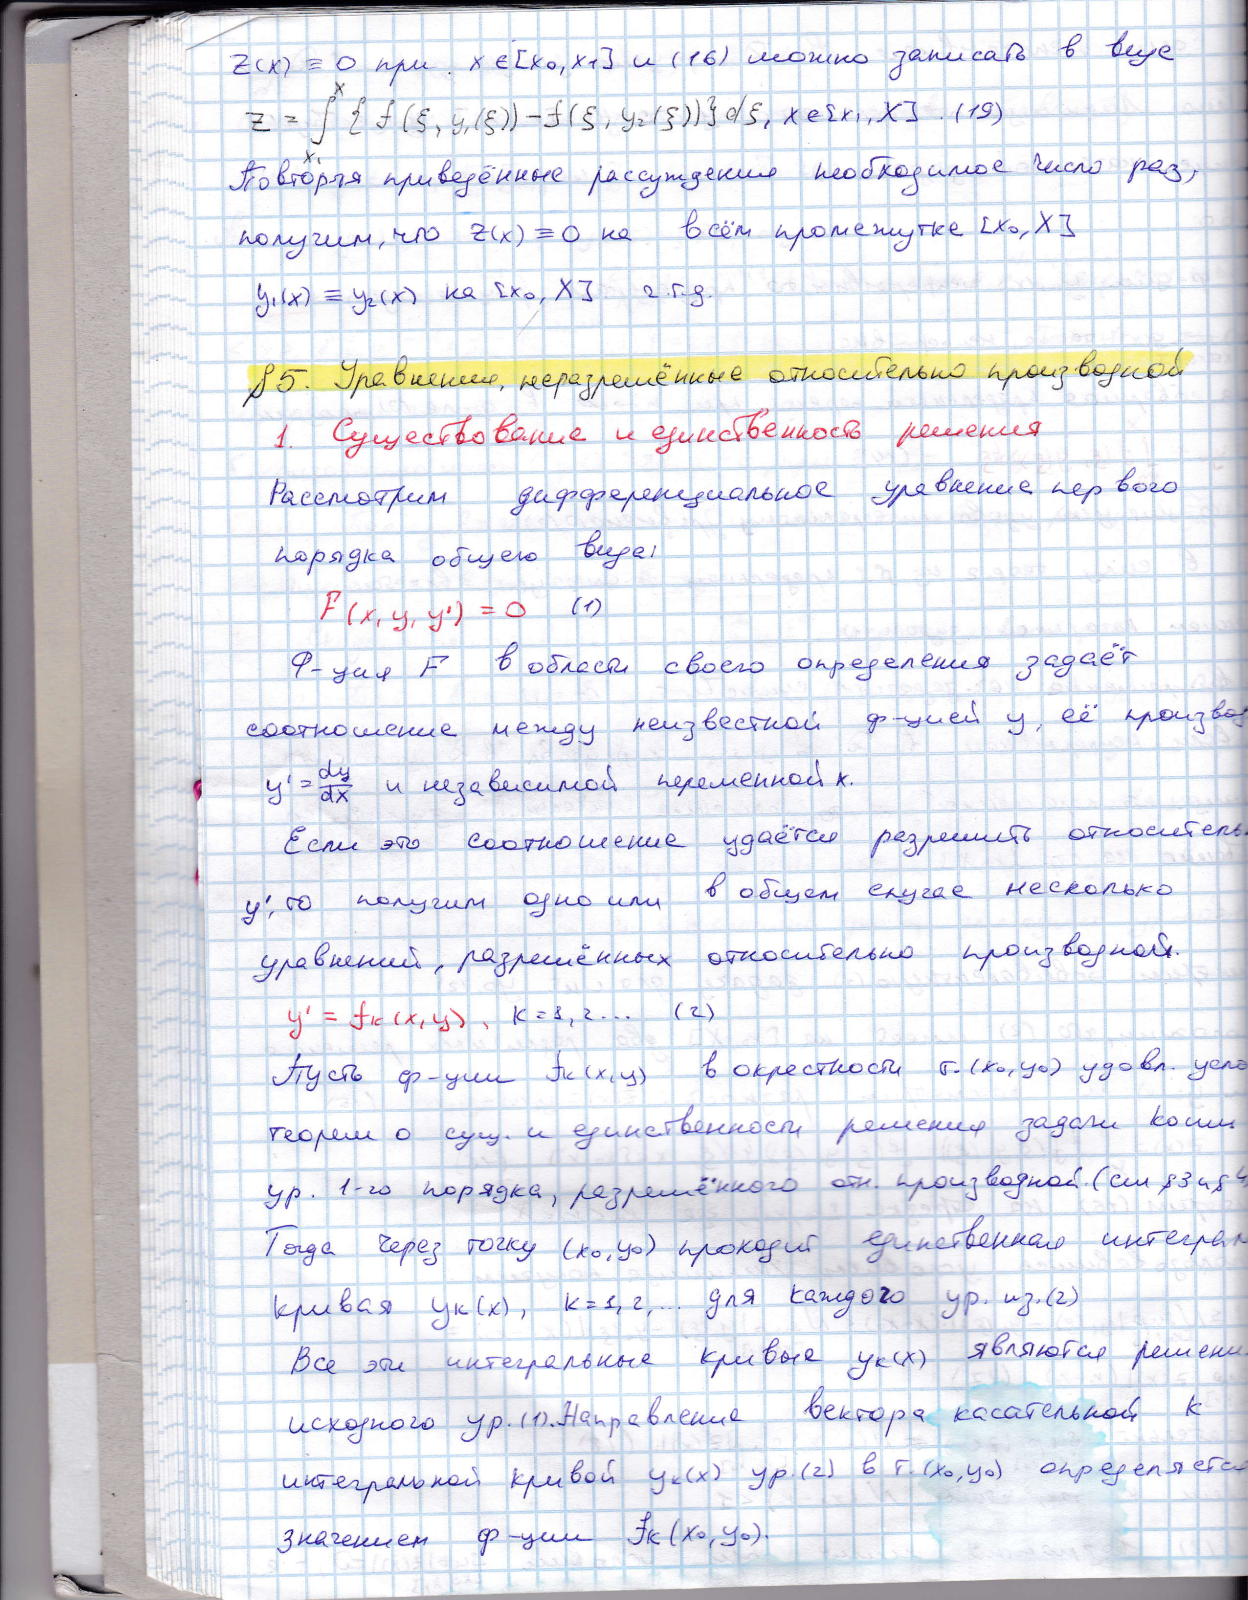 Z(x) ≡ 0 при x ∈ [x₀, x₁] и (16) можно записать в виде
Z = ∫ₓ₁ˣ { f(ξ, y₁(ξ)) – f(ξ, y₂(ξ)) } dξ, x ∈ [x₁, X]. (19)
Повторяя приведённые рассуждения необходимое число раз,
получим, что Z(x) ≡ 0 на всём промежутке [x₀, X]
y₁(x) ≡ y₂(x) на [x₀, X] ч.т.д.
§5. Уравнения, неразрешённые относительно производной
1. Существование и единственность решения
Рассмотрим дифференциальное уравнение первого
порядка общего вида:
F(x, y, y') = 0 (1)
Ф-ция F в области своего определения задаёт
соотношение между неизвестной ф-цией y, её производ
y' = dy/dx и независимой переменной x.
Если это соотношение удаётся разрешить относитель
y', то получим одно или в общем случае несколько
уравнений, разрешённых относительно производной.
y' = fₖ(x, y), k = 1, 2... (2)
Пусть ф-ции fₖ(x, y) в окрестности т. (x₀, y₀) удовл. усло
теорем о сущ. и единственности решения задачи Коши
ур. 1-го порядка, разрешённого отн. производной. (см §3 и §4
Тогда через точку (x₀, y₀) проходит единственная интеграл
кривая yₖ(x), k = 1, 2, ... для каждого ур. из (2)
Все эти интегральные кривые yₖ(x) являются решени
исходного ур. (1). Направление вектора касательной к
интегральной кривой yₖ(x) ур. (2) в т. (x₀, y₀) определяется
значением ф-ции fₖ(x₀, y₀).